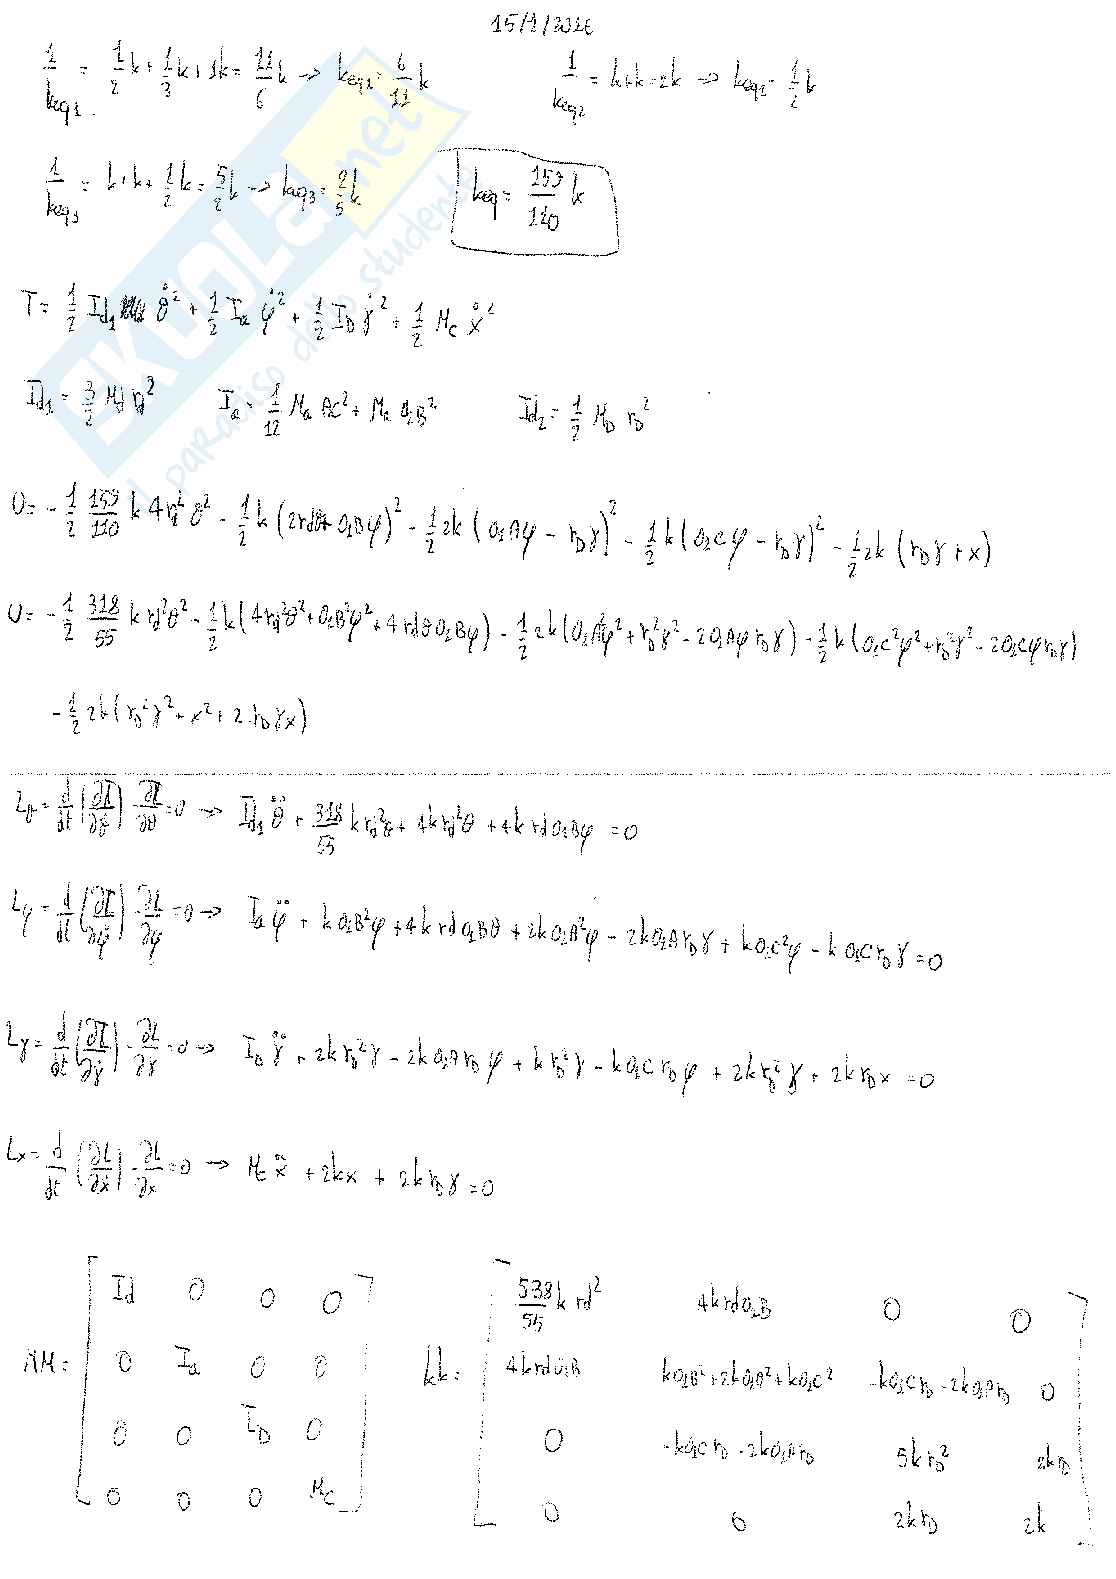 15/1/2026
1/keq1 = 1/2 k + 1/3 k + 1k = 11/6 k → keq1 = 6/11 k    1/keq2 = k+k = 2k → keq2 = 1/2 k
1/keq3 = k+k+1/2 k = 5/2 k → keq3 = 2/5 k    keq = 159/110 k
T = 1/2 Id1 θ̇² + 1/2 Ia φ̇² + 1/2 ID γ̇² + 1/2 Mc ẋ²
Id1 = 3/2 Md rd²    Ia = 1/12 Ma AC² + Ma O2B²    Id2 = 1/2 MD rD²
U = - 1/2 159/110 k 4 rd² θ² - 1/2 k (2rdθ + O2Bφ)² - 1/2 2k (O2Aφ - rDγ)² - 1/2 k (O2Cφ - rDγ)² - 1/2 2k (rDγ + x)
U = - 1/2 318/55 k rd²θ² - 1/2 k (4rd²θ² + O2B²φ² + 4rdθO2Bφ) - 1/2 2k (O2A²φ² + rD²γ² - 2O2AφrDγ) - 1/2 k (O2C²φ² + rD²γ² - 2O2CφrDγ)
- 1/2 2k (rD²γ² + x² + 2rDγx)
Lθ = d/dt (∂L/∂θ̇) - ∂L/∂θ = 0 → Id1 θ̈ + 318/55 k rd²θ + 4k rd²θ + 4k rd O2Bφ = 0
Lφ = d/dt (∂L/∂φ̇) - ∂L/∂φ = 0 → Ia φ̈ + k O2B²φ + 4k rd O2Bθ + 2k O2A²φ - 2k O2A rDγ + k O2C²φ - k O2C rDγ = 0
Lγ = d/dt (∂L/∂γ̇) - ∂L/∂γ = 0 → ID γ̈ + 2k rD²γ - 2k O2A rDφ + k rD²γ - k O2C rDφ + 2k rD²γ + 2k rD x = 0
Lx = d/dt (∂L/∂ẋ) - ∂L/∂x = 0 → Mc ẍ + 2kx + 2k rDγ = 0
Id 0 0 0    538/55 k rd²    4k rd O2B    0    0
MM = 0 Ia 0 0    kk = 4k rd O2B    k O2B² + 2k O2A² + k O2C²    -k O2C rD - 2k O2A rD    0
0 0 ID 0    0    -k O2C rD - 2k O2A rD    5k rD²    2k rD
0 0 0 Mc    0    0    2k rD    2k
SKUOLA.net
il paradiso dello studente